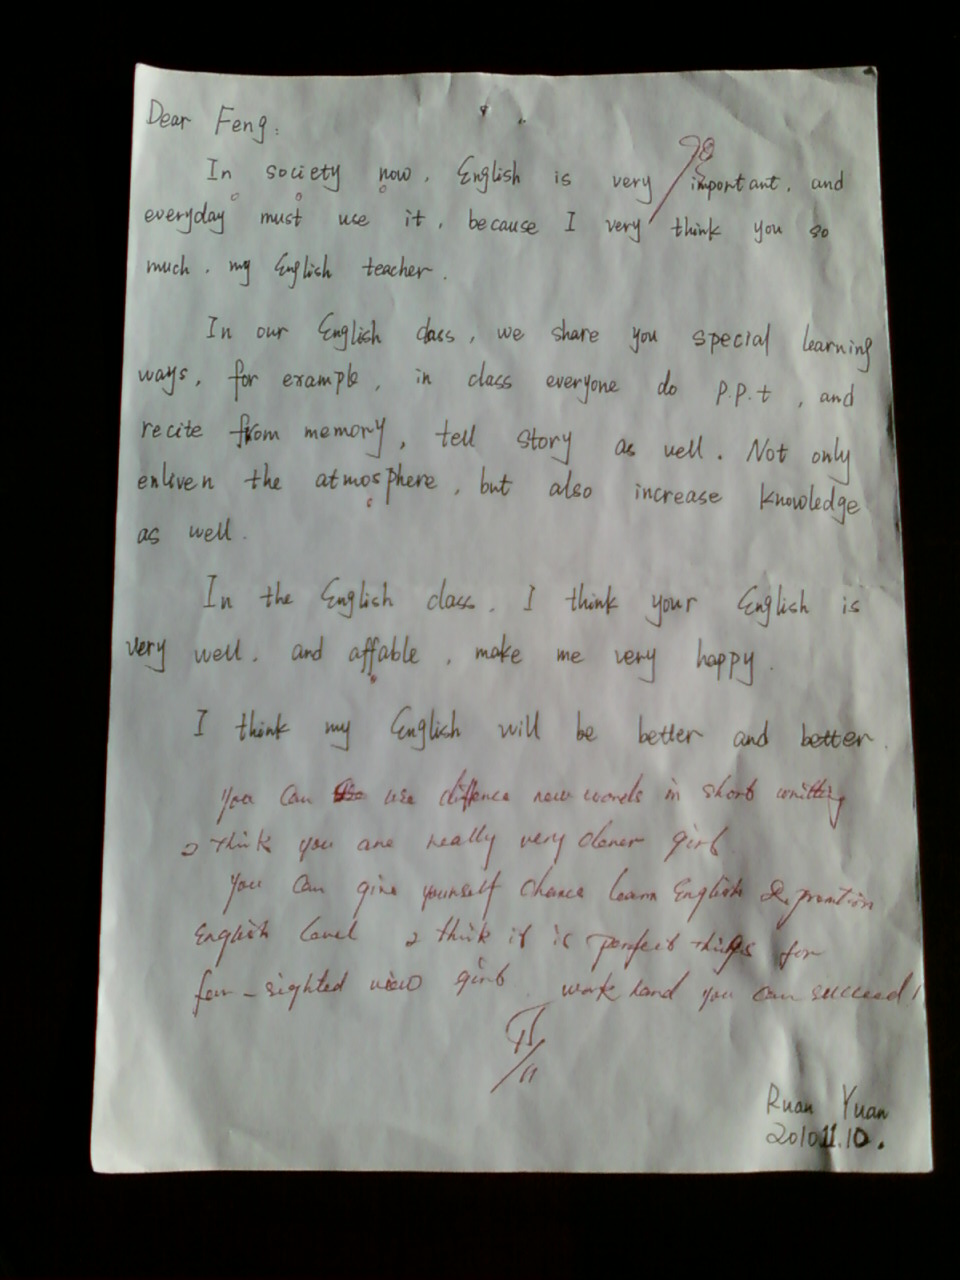 Dear Feng:
98
In society now, English is very important, and
everyday must use it, because I very think you so
much, my English teacher.
In our English class, we share you special learning
ways, for example, in class everyone do p.p.t, and
recite from memory, tell story as well. Not only
enliven the atmosphere, but also increase knowledge
as well.
In the English class, I think your English is
very well, and affable, make me very happy.
I think my English will be better and better.
you can use diffence new words in short writting
I think you are really very clever girl
you can give yourself chance learn English & promtion
English level I think it is perfect things for
far-sighted view girl work hard you can succeed!
/11
Ruan Yuan
2010 11.10.